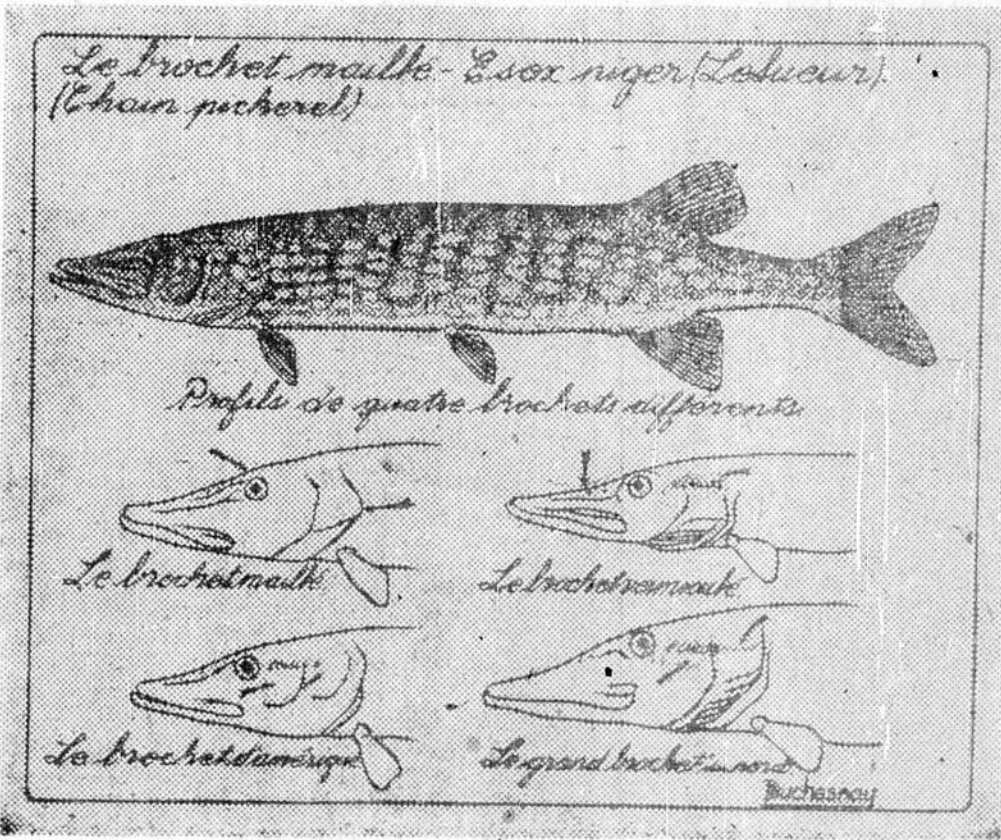 Le brochet maillé - Esox niger (Lesueur)
(Chain pickerel)
Profils de quatre brochets différents
Le brochet maillé
Le brochet vermiculé
Le brochet d'amérique
Le grand brochet du nord
Duchesnay